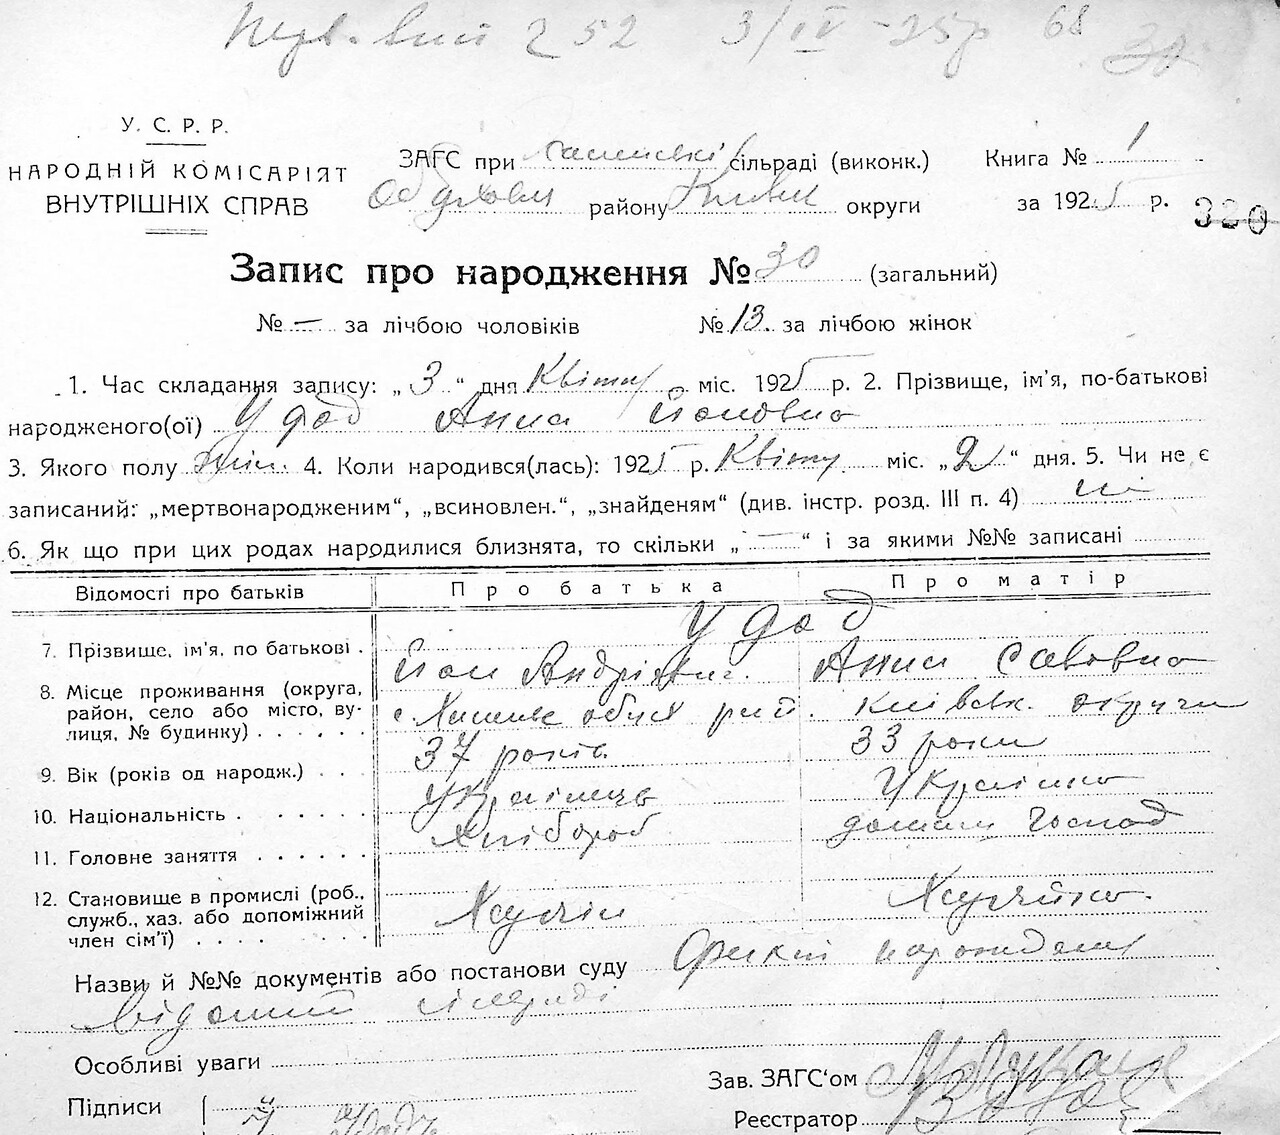 252 3/IV - 25р 68 30
У. С. Р. Р.
НАРОДНІЙ КОМІСАРІЯТ
ВНУТРІШНІХ СПРАВ
ЗАГС при сільраді (виконк.)
району округи
Книга № 1
за 1925 р.
320
Запис про народження № 30 (загальний)
№ — за лічбою чоловіків № 13. за лічбою жінок
1. Час складання запису: „ 3 “ дня Квітня міс. 1925 р. 2. Прізвище, ім'я, по-батькові
народженого(ої) Удод Анна Йоновна
3. Якого полу жін. 4. Коли народився(лась): 1925 р. Квітня міс. „ 2 “ дня. 5. Чи не є
записаний: „мертвонародженим“, „всиновлен.“, „знайденям“ (див. інстр. розд. III п. 4) ні
6. Як що при цих родах народилися близнята, то скільки „ — “ і за якими №№ записані
Відомості про батьків Про батька Про матір
Удод
7. Прізвище, ім'я, по батькові . Йон Андріович. Анна Савовна
8. Місце проживання (округа,
район, село або місто, ву-
лиця, № будинку) . . . . . . с рай. Київськ. округи
9. Вік (років од народж.) . . . 37 років 33 роки
10. Національність . . . . . . . Українець Українка
11. Головне заняття . . . . . . Хлібороб домаш господ
12. Становище в промислі (роб.,
служб., хаз. або допоміжний
член сім'ї) . . . . . . .
Назви й №№ документів або постанови суду Факт народження
відомий сілраді
Особливі уваги
Зав. ЗАГС'ом
Підписи
Реєстратор